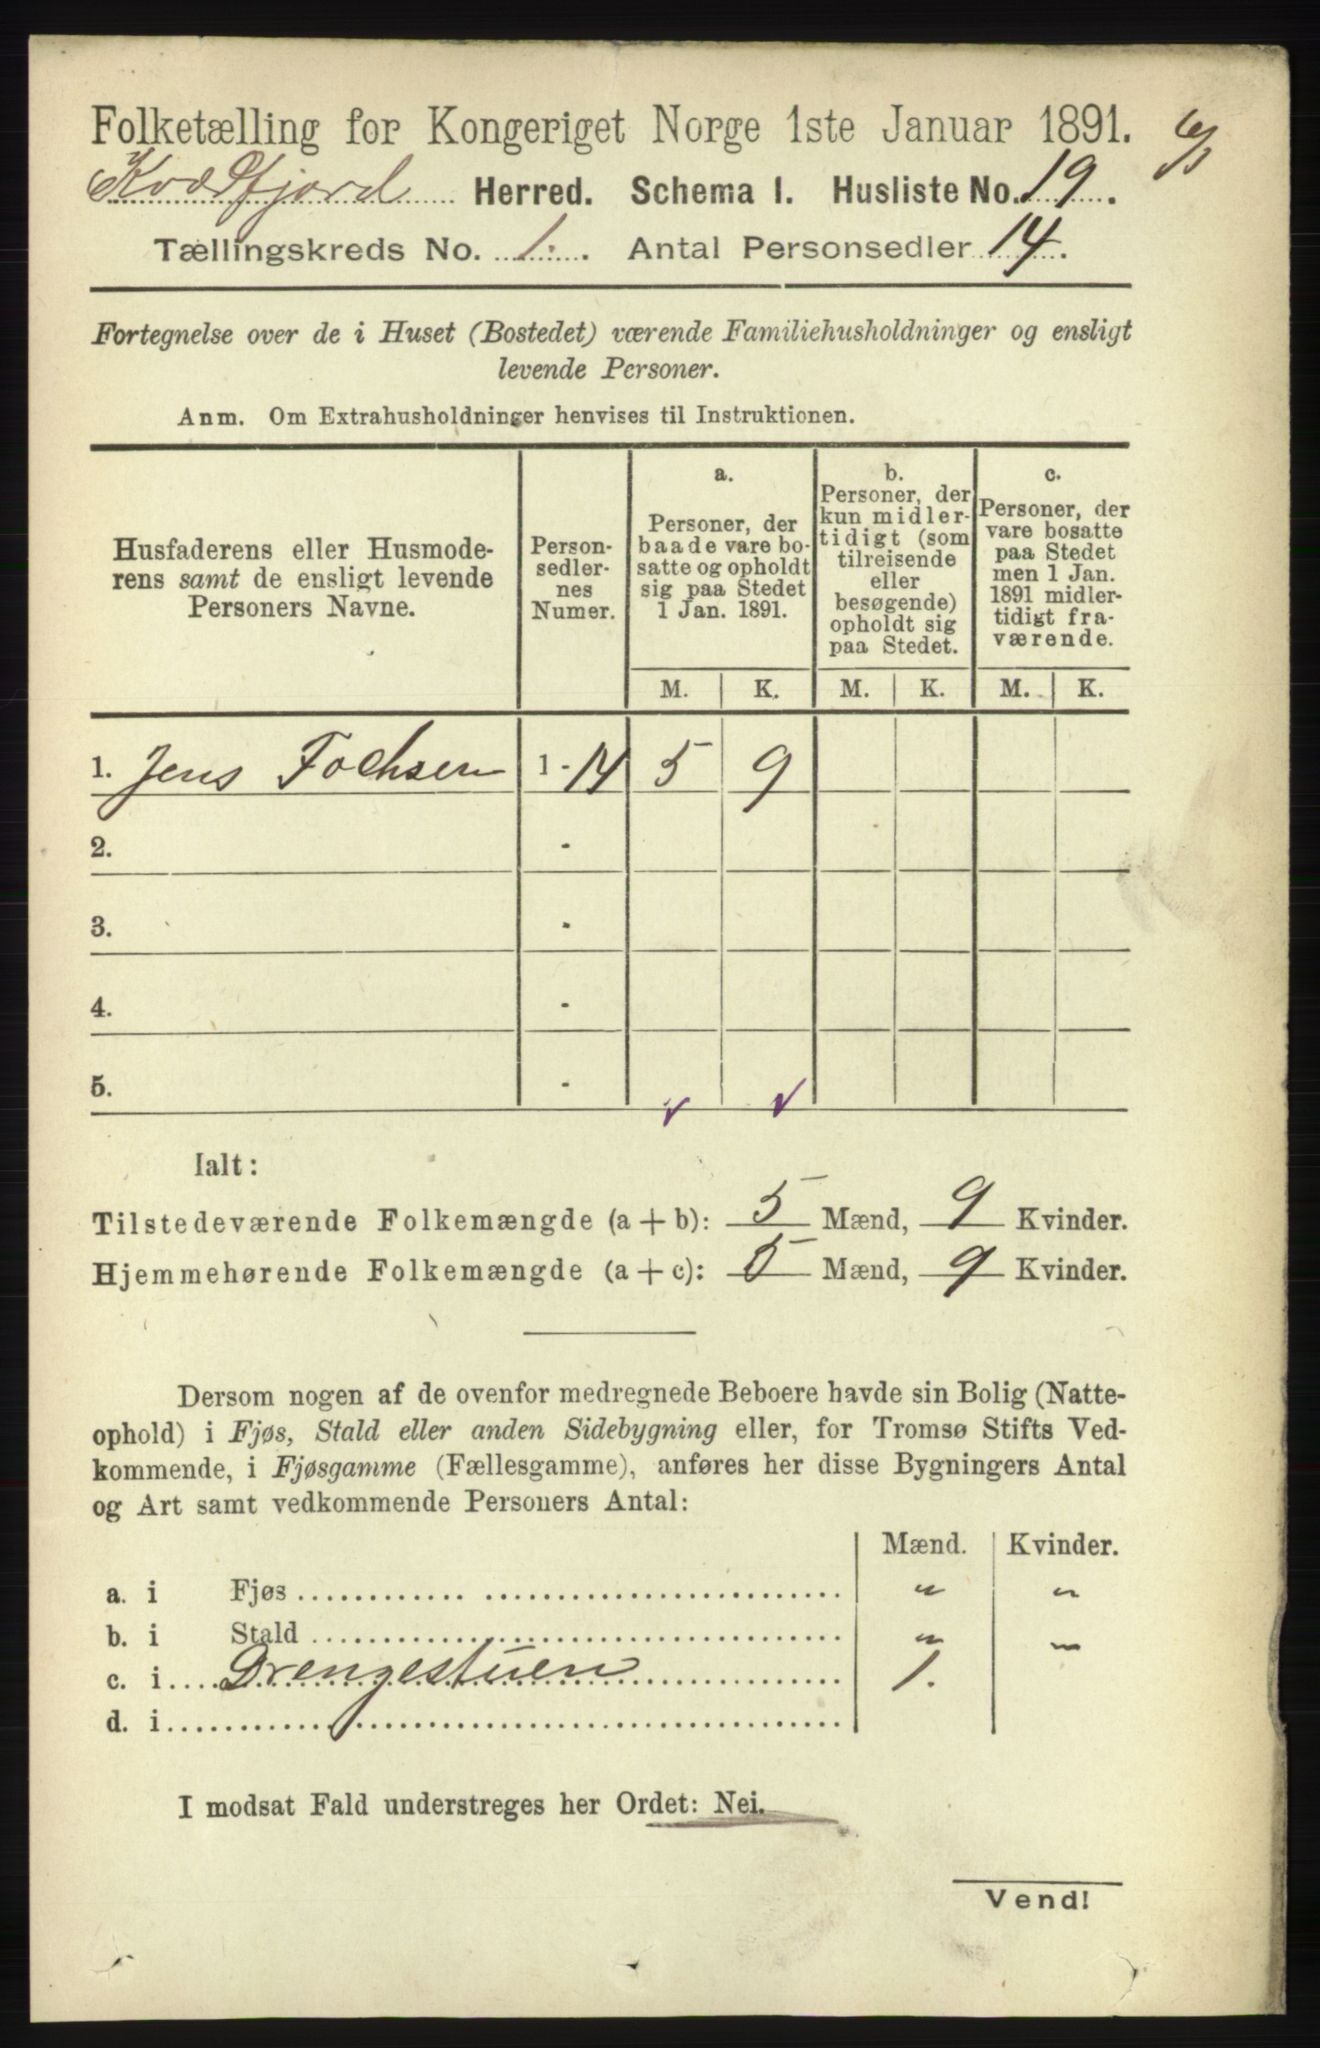 Folketælling for Kongeriget Norge 1ste Januar 1891.
Kvædfjord Herred. Schema I. Husliste No. 19.
Tællingskreds No. 1. Antal Personsedler 14.
Fortegnelse over de i Huset (Bostedet) værende Familiehusholdninger og ensligt
levende Personer.
Anm. Om Extrahusholdninger henvises til Instruktionen.
Husfaderens eller Husmode-
rens samt de ensligt levende
Personers Navne.
Person-
sedler-
nes
Numer.
a.
Personer, der
baade vare bo-
satte og opholdt
sig paa Stedet
1 Jan. 1891.
b.
Personer, der
kun midler-
tidigt (som
tilreisende
eller
besøgende)
opholdt sig
paa Stedet.
c.
Personer, der
vare bosatte
paa Stedet
men 1 Jan.
1891 midler-
tidigt fra-
værende.
M. K. M. K. M. K.
1. Jens Fochsen 1 - 14 5 9
2. -
3. -
4. -
5. -
Ialt:
Tilstedeværende Folkemængde (a + b): 5 Mænd, 9 Kvinder.
Hjemmehørende Folkemængde (a + c): 5 Mænd, 9 Kvinder.
Dersom nogen af de ovenfor medregnede Beboere havde sin Bolig (Natte-
ophold) i Fjøs, Stald eller anden Sidebygning eller, for Tromsø Stifts Ved-
kommende, i Fjøsgamme (Fællesgamme), anføres her disse Bygningers Antal
og Art samt vedkommende Personers Antal:
Mænd. Kvinder.
a. i Fjøs " "
b. i Stald " "
c. i Drengestuen 1.
d. i
I modsat Fald understreges her Ordet: Nei.
Vend!